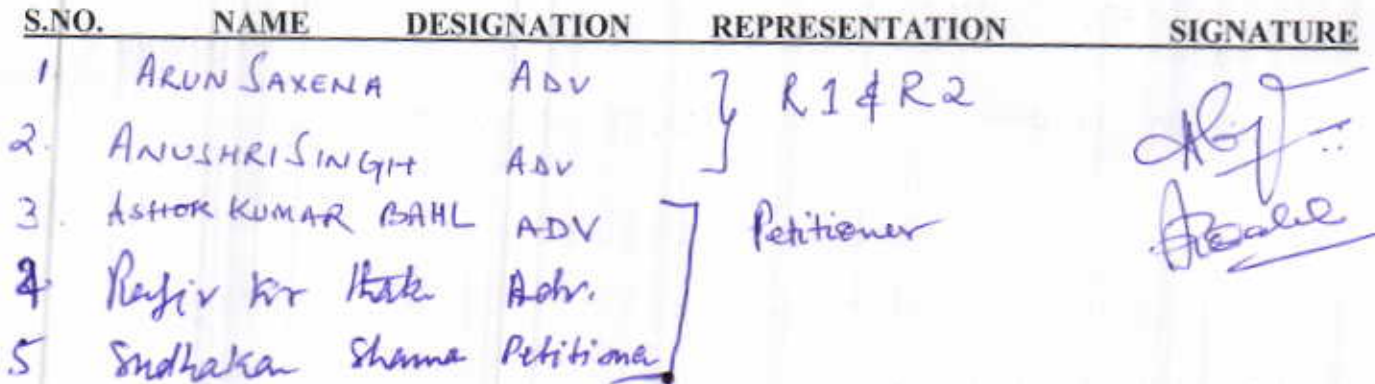 S.NO. NAME DESIGNATION REPRESENTATION SIGNATURE
1 ARUN SAXENA ADV R1 & R2
2. ANUSHRI SINGH ADV
3. ASHOK KUMAR BAHL ADV Petitioner
4. Kr Adv.
5 Sudhakar Sharma Petitioner